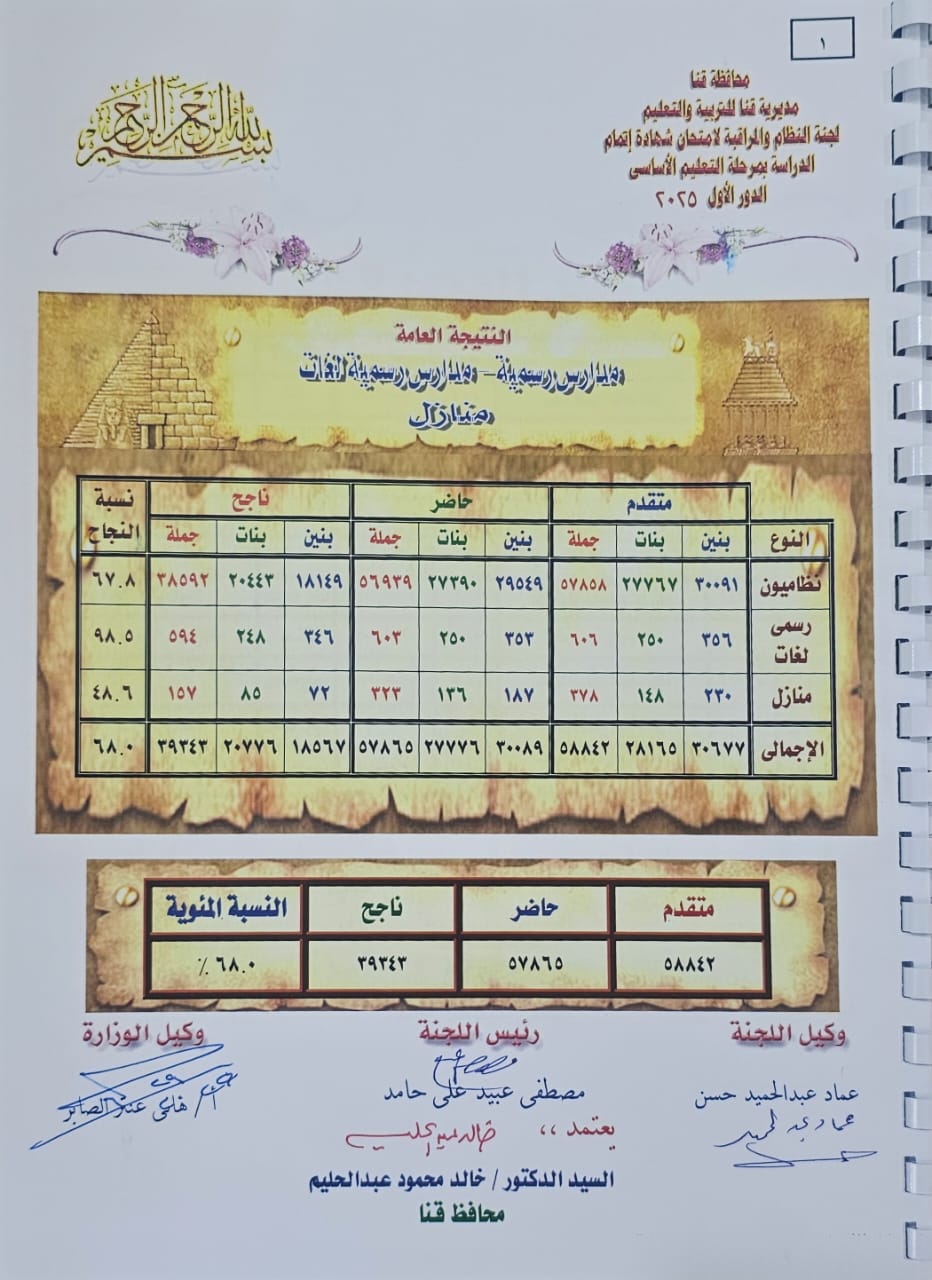 ١
محافظة قنا
مديرية قنا للتربية والتعليم
لجنة النظام والمراقبة لامتحان شهادة إتمام
الدراسة بمرحلة التعليم الأساسى
الدور الأول ٢٠٢٥
بسم الله الرحمن الرحيم
النتيجة العامة
مدارس رسمية – مدارس رسمية لغات
منازل
متقدم حاضر ناجح نسبة النجاح
النوع بنين بنات جملة بنين بنات جملة بنين بنات جملة
نظاميون ٣٠٠٩١ ٢٧٧٦٧ ٥٧٨٥٨ ٢٩٥٤٩ ٢٧٣٩٠ ٥٦٩٣٩ ١٨١٤٩ ٢٠٤٤٣ ٣٨٥٩٢ ٦٧.٨
رسمى لغات ٣٥٦ ٢٥٠ ٦٠٦ ٣٥٣ ٢٥٠ ٦٠٣ ٣٤٦ ٢٤٨ ٥٩٤ ٩٨.٥
منازل ٢٣٠ ١٤٨ ٣٧٨ ١٨٧ ١٣٦ ٣٢٣ ٧٢ ٨٥ ١٥٧ ٤٨.٦
الإجمالى ٣٠٦٧٧ ٢٨١٦٥ ٥٨٨٤٢ ٣٠٠٨٩ ٢٧٧٧٦ ٥٧٨٦٥ ١٨٥٦٧ ٢٠٧٧٦ ٣٩٣٤٣ ٦٨.٠
متقدم حاضر ناجح النسبة المئوية
٥٨٨٤٢ ٥٧٨٦٥ ٣٩٣٤٣ ٦٨.٠ ٪
وكيل اللجنة رئيس اللجنة وكيل الوزارة
عماد عبدالحميد حسن مصطفى عبيد على حامد
يعتمد ،،
السيد الدكتور / خالد محمود عبدالحليم
محافظ قنا